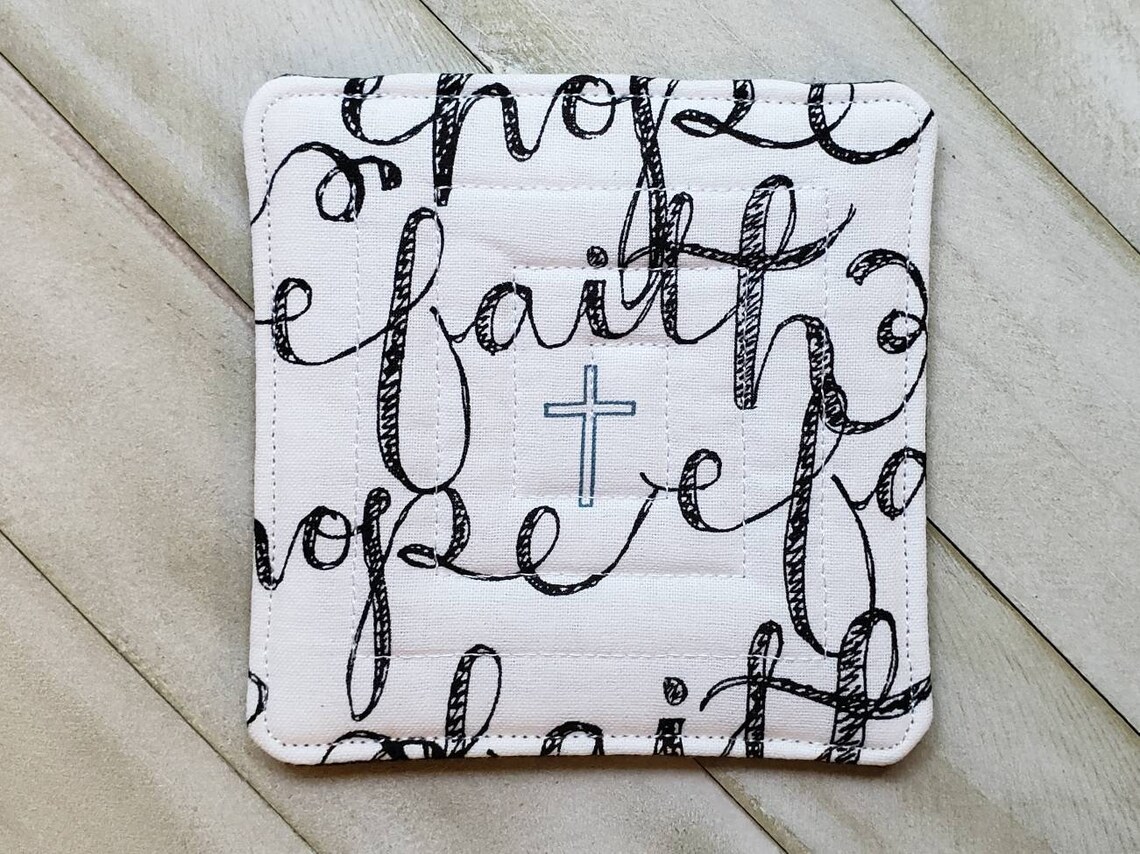 hope
faith
hope
faith